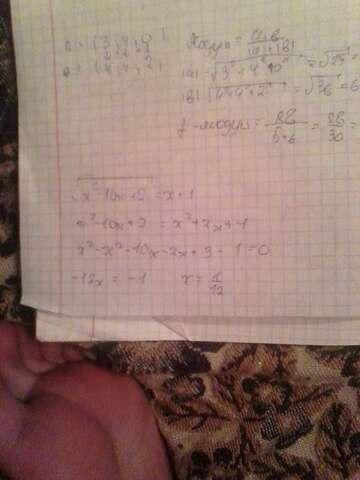 a = (3,4,0)
b = (4,4,2)
a·b / |a|·|b|
|a| √3² + 4² + 0² = √25 =
|b| √4² + 4² + 2² = √36 = 6
= 28 / 5·6 = 28 / 30 =
√x²-10x+2 = x+1
x²-10x+2 = x²+2x+1
x²-x²-10x-2x+2-1=0
-12x = -1 x = 1/12